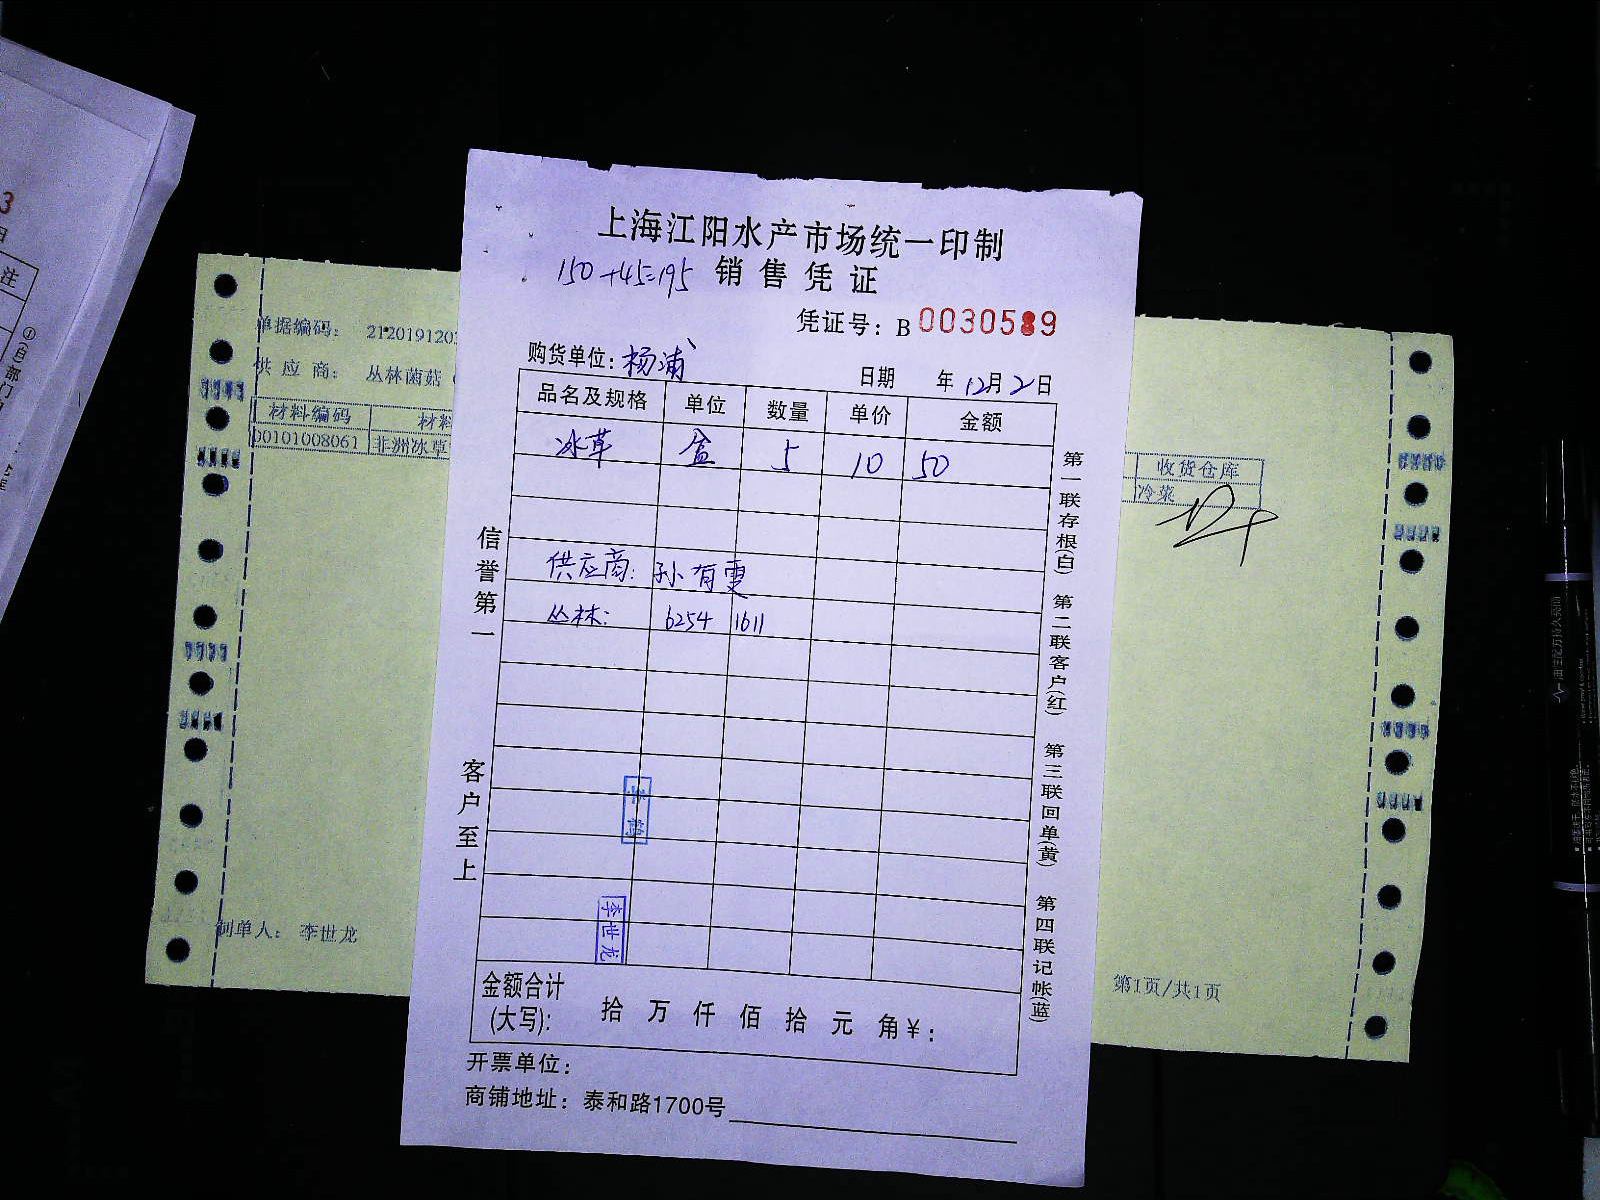 上海江阳水产市场统一印制
150+45=195 销售凭证
凭证号：B 0030589
购货单位：杨浦 日期 年 12月 2日
品名及规格 单位 数量 单价 金额
冰草 盒 5 10 50
供应商：孙有雯
丛林： 6254 1611
李世龙
金额合计
(大写)： 拾 万 仟 佰 拾 元 角 ¥：
开票单位：
商铺地址：泰和路1700号
信誉第一
客户至上
第一联存根(白) 第二联客户(红) 第三联回单(黄) 第四联记帐(蓝)
单据编码： 2120191202
供应商： 丛林菌菇（
材料编码 材料
00101008061 非洲冰草
制单人： 李世龙
收货仓库
冷菜
第1页/共1页
3
日
注
(白)部门